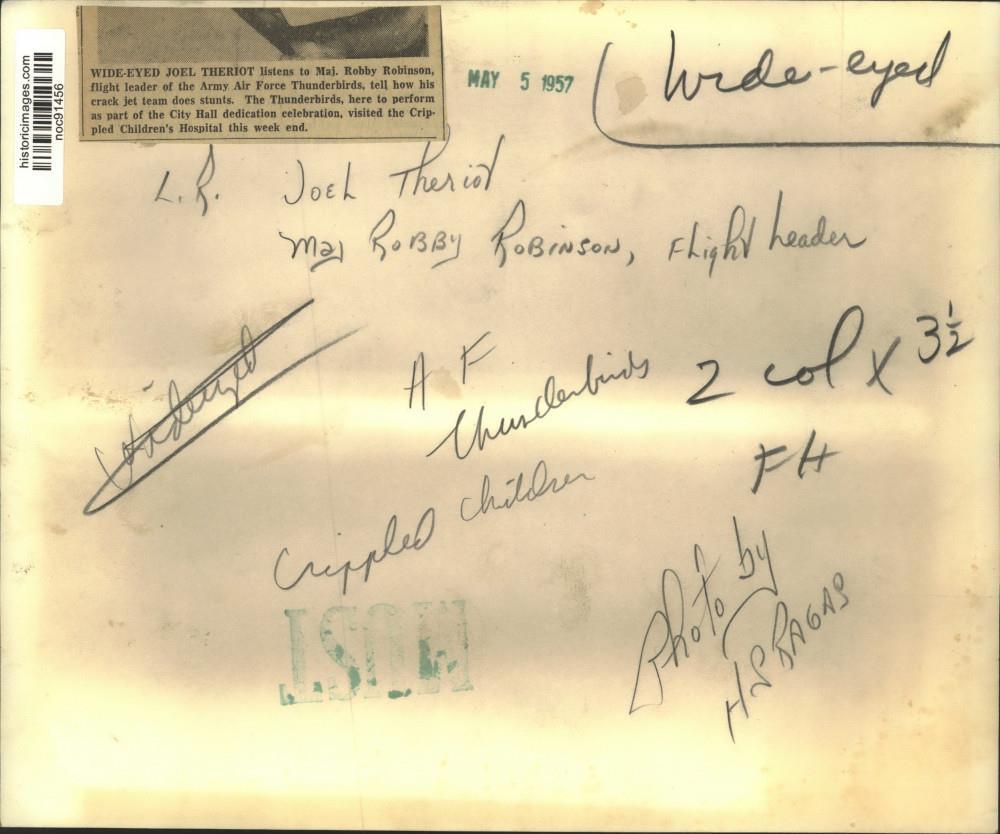 historicimages.com
noc91456
WIDE-EYED JOEL THERIOT listens to Maj. Robby Robinson,
flight leader of the Army Air Force Thunderbirds, tell how his
crack jet team does stunts. The Thunderbirds, here to perform
as part of the City Hall dedication celebration, visited the Crip-
pled Children's Hospital this week end.
MAY 5 1957
Wide-eyed
L.R. JOEL Theriot
Maj ROBBY ROBINSON, Flight Leader
Wideeyed
A F
Thunderbirds
2 col x 3½
FH
Crippled Children
MUST
Photo by
HS RAGAS